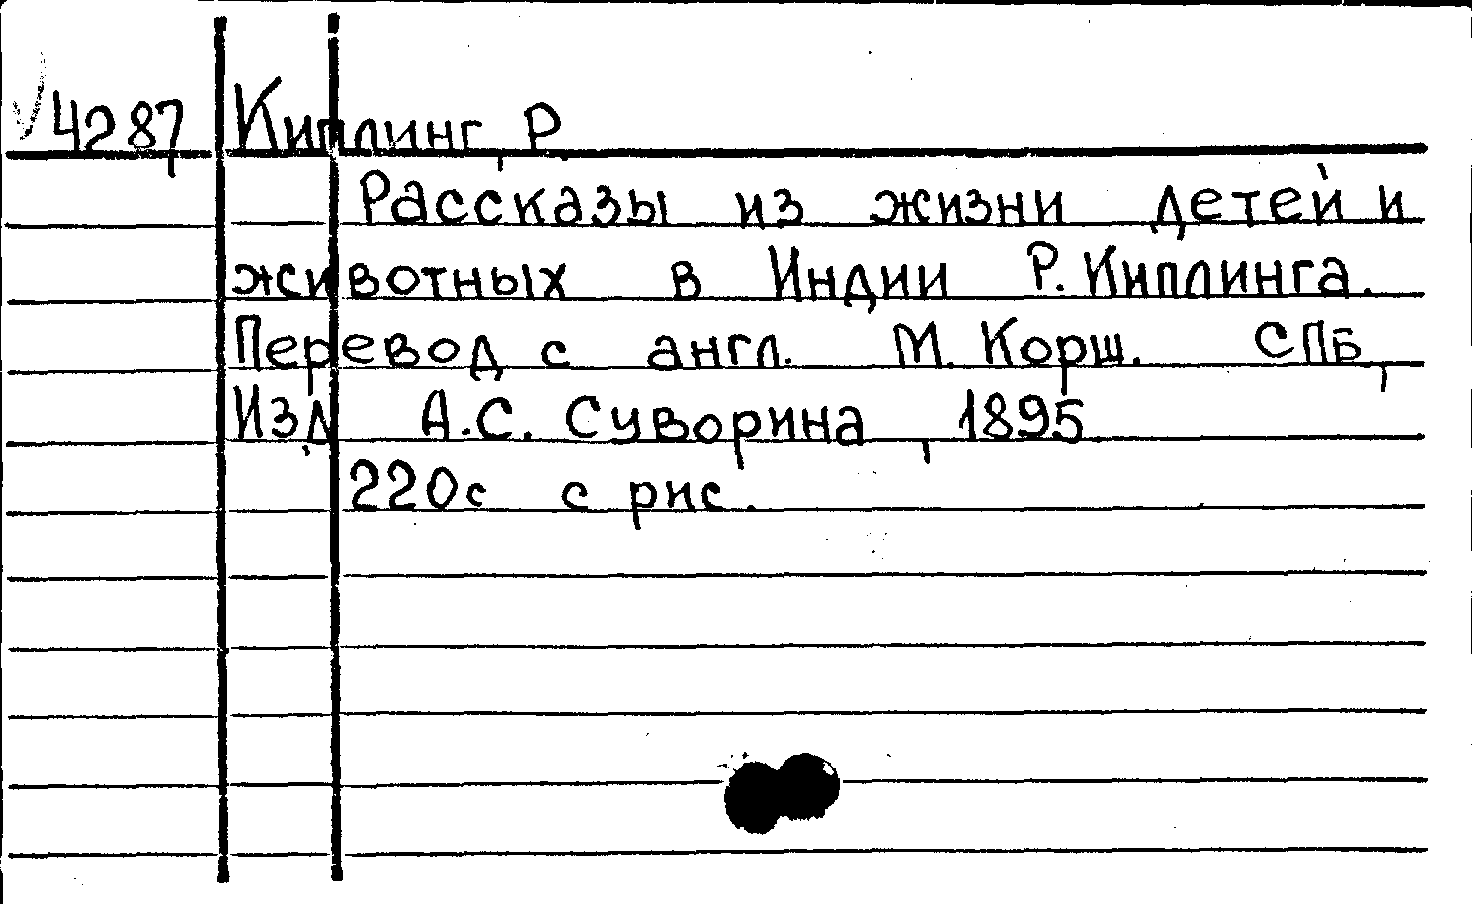 4287 Киплинг, Р.
Рассказы из жизни детей и
животных в Индии Р. Киплинга.
Перевод с англ. М. Корш. СПБ,
Изд. А.С. Суворина, 1895.
220с с рис.